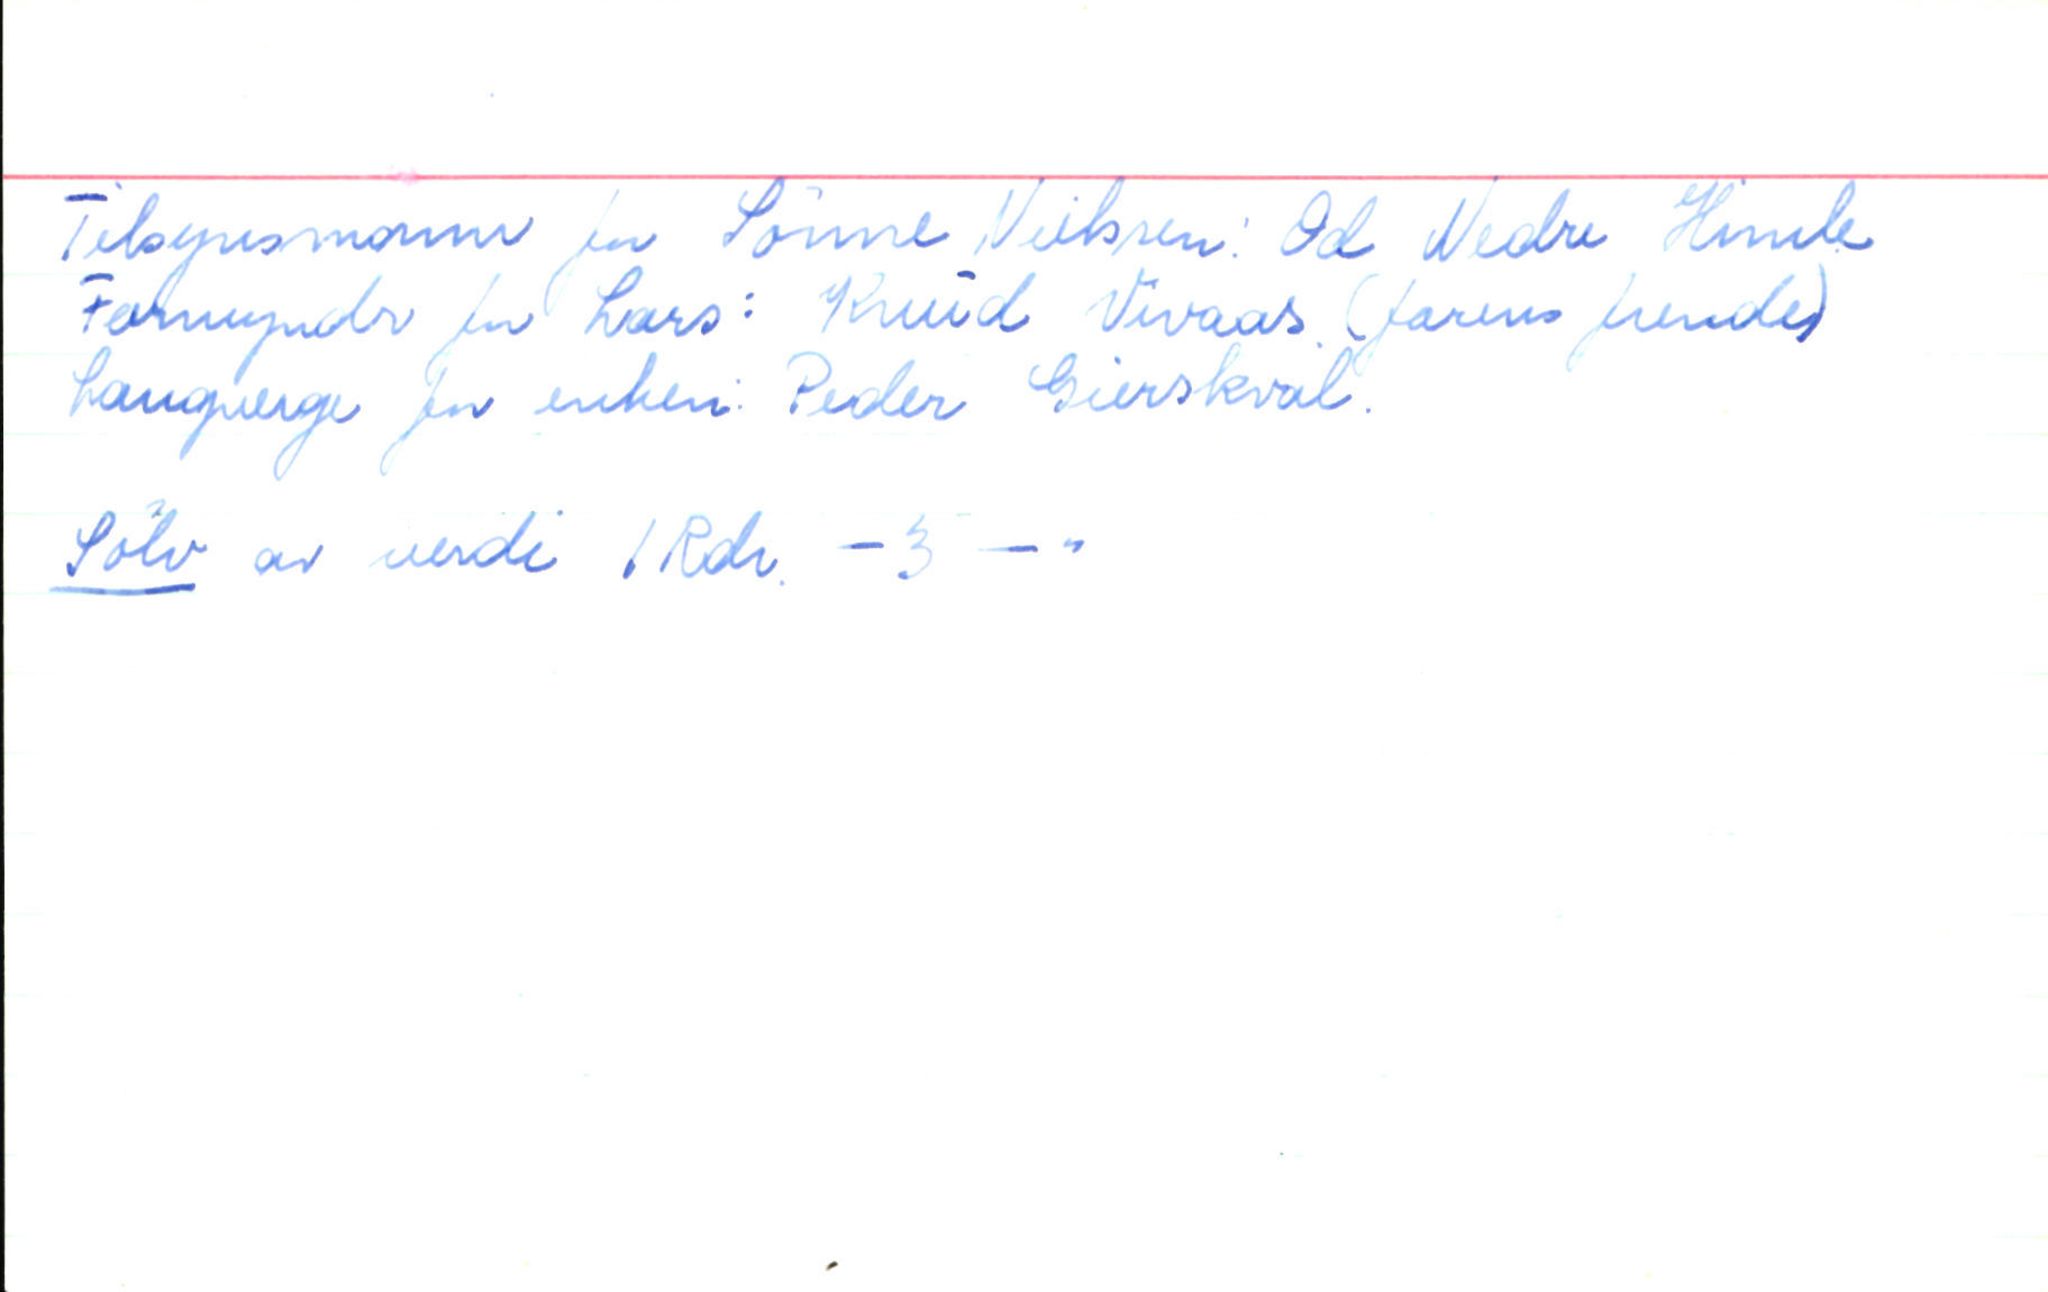 Tilsynsmann for Sönne Nielsen: Od Nedre Himle
Formyndr for Lars: Knud Vivaas. (farens frende)
Laugverge for enken: Peder Gierskval.
Sölv av verdi 1 Rdr. - 3 - "